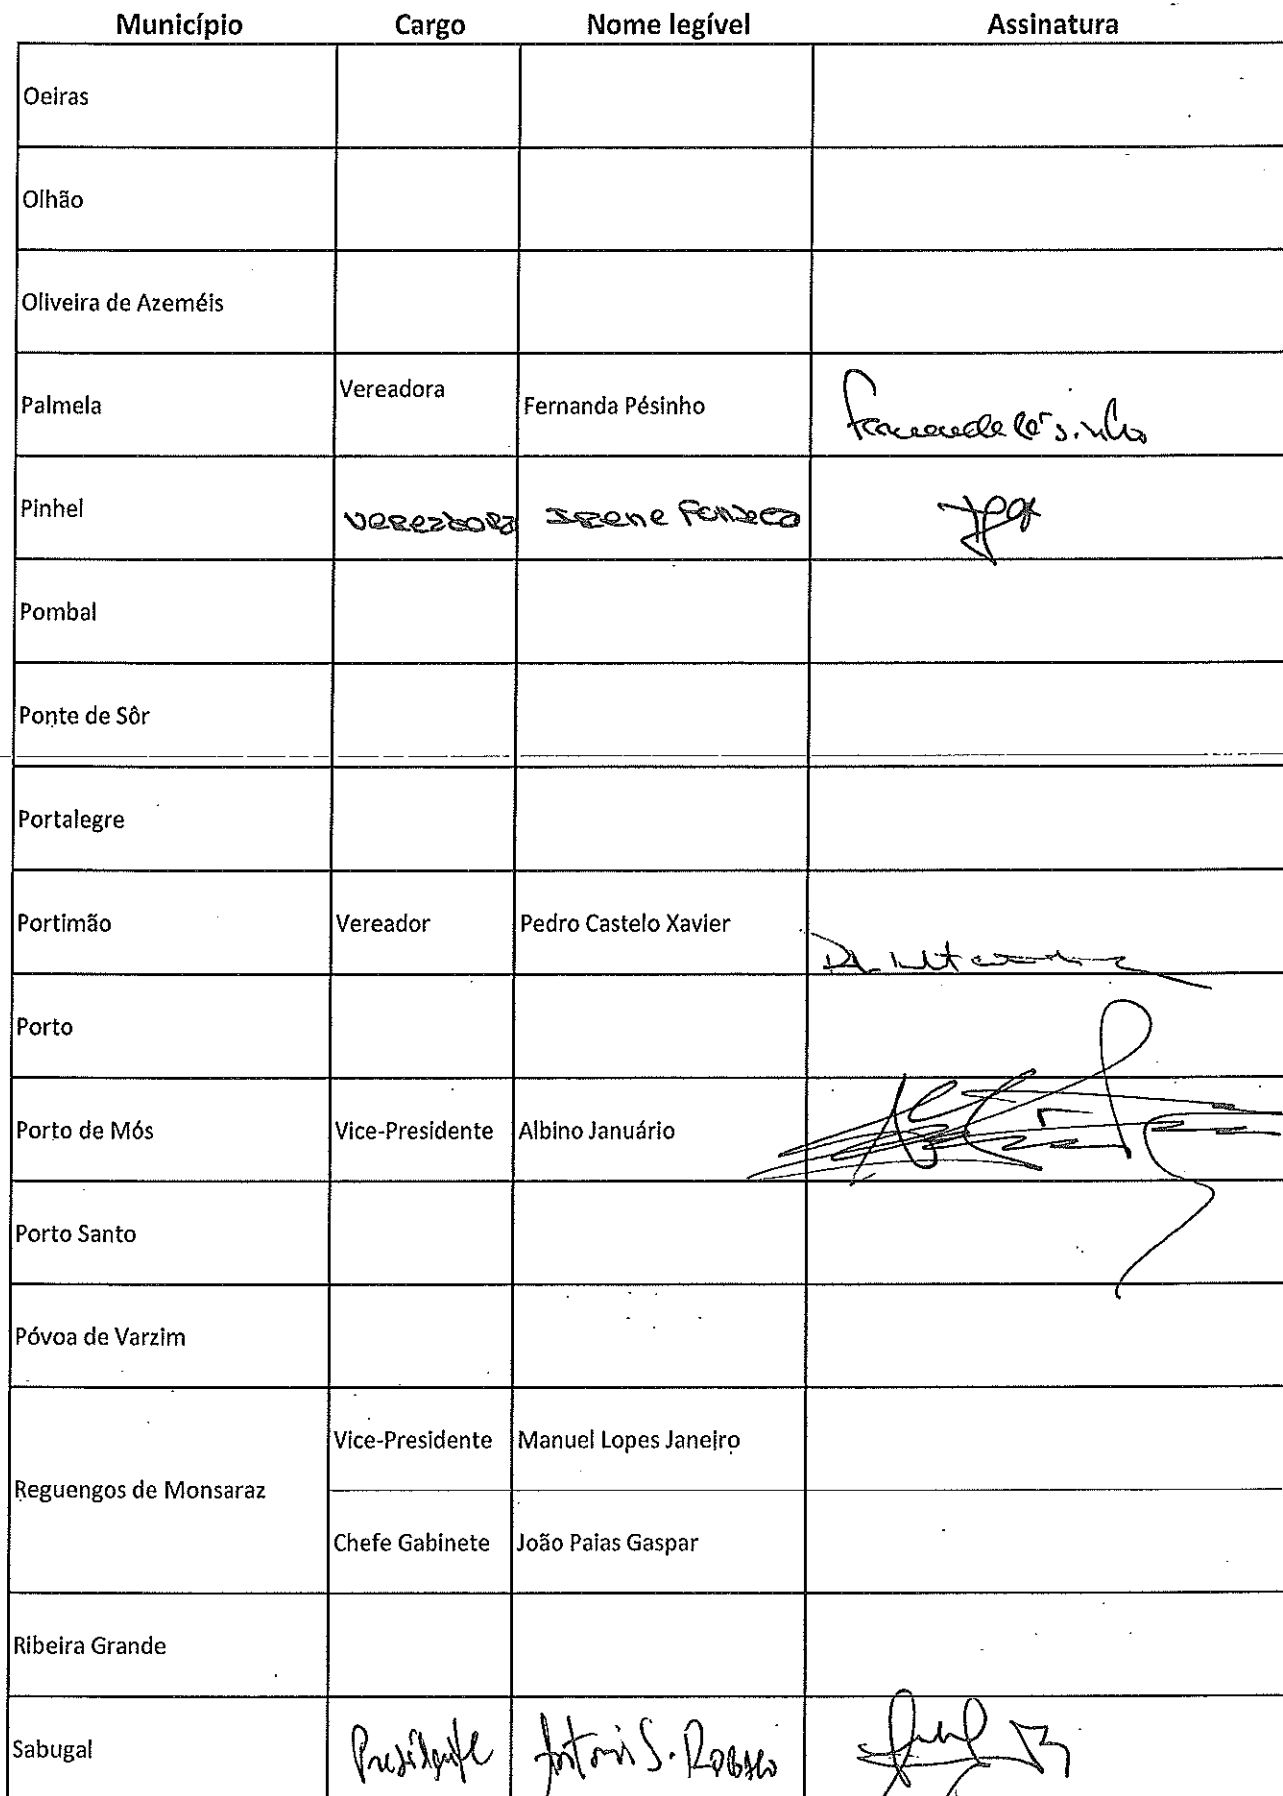 Município Cargo Nome legível Assinatura
Oeiras
Olhão
Oliveira de Azeméis
Palmela Vereadora Fernanda Pésinho Fernanda Pésinho
Pinhel Vereadora Irene Fonseca
Pombal
Ponte de Sôr
Portalegre
Portimão Vereador Pedro Castelo Xavier
Porto
Porto de Mós Vice-Presidente Albino Januário
Porto Santo
Póvoa de Varzim
Reguengos de Monsaraz Vice-Presidente Manuel Lopes Janeiro
Chefe Gabinete João Paias Gaspar
Ribeira Grande
Sabugal Presidente António S. Robalo